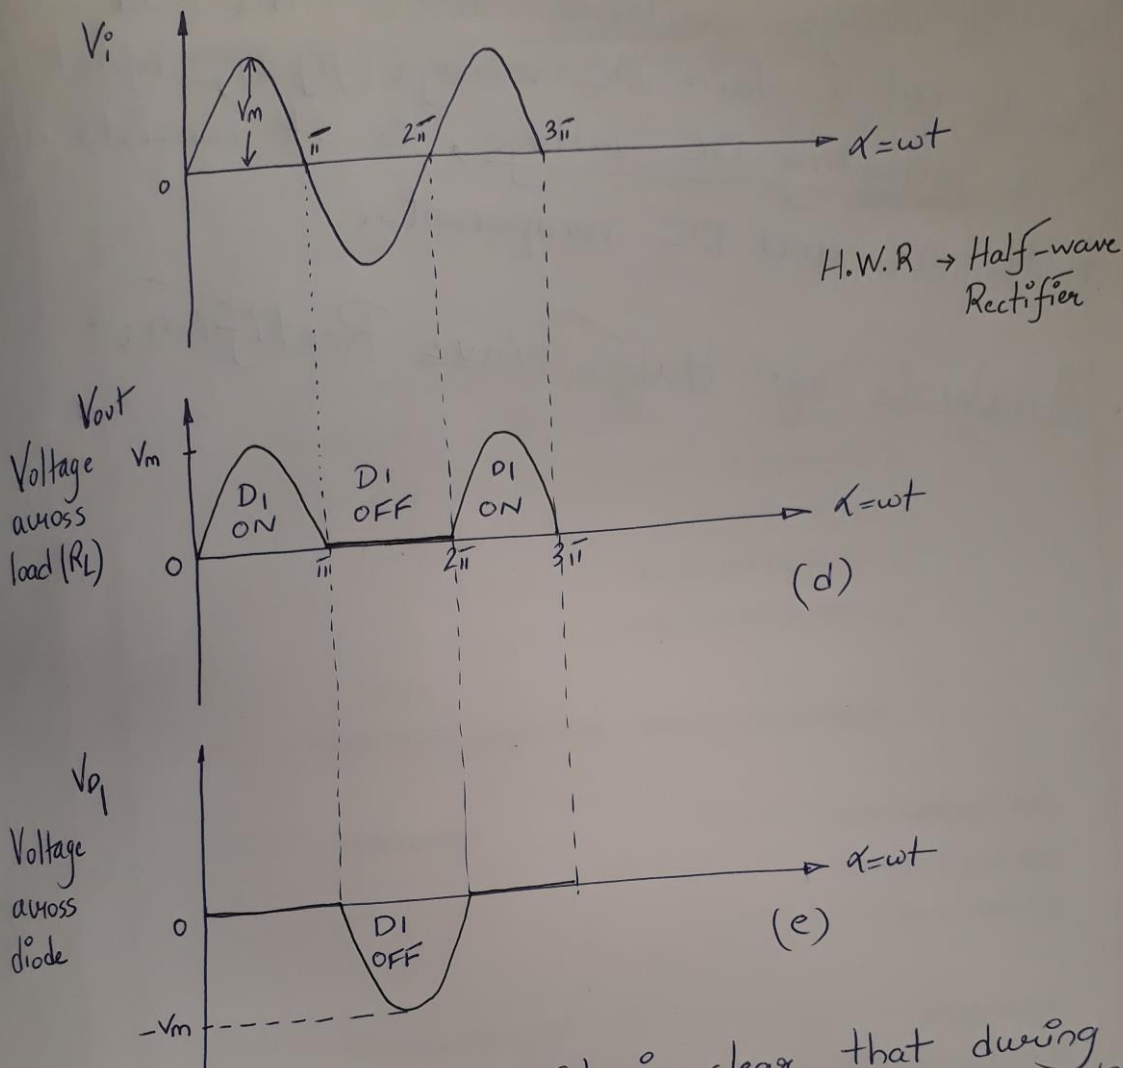 Vi
Vm
π
2π
3π
α=ωt
0
H.W.R → Half-wave
Rectifier
Vout
Voltage
across
load (RL)
Vm
D1
ON
D1
OFF
D1
ON
α=ωt
0
π
2π
3π
(d)
VD1
Voltage
across
diode
0
D1
OFF
α=ωt
(e)
-Vm
clear that during